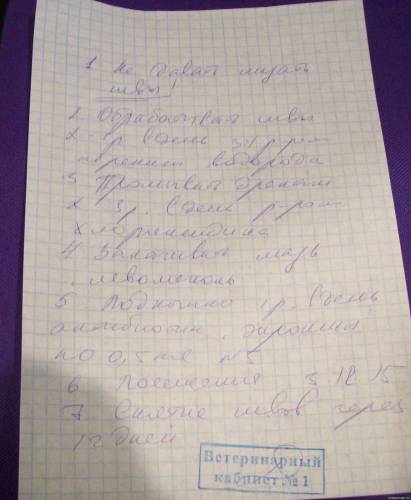 1 Не давать лизать
швы!
2 Обрабатывать швы
2-3 р. в день 3% р-ром
перекиси водорода
3 Промывать дренаж
2 3 р. в день р-ром
Хлоргексидина
4 Закачивать мазь
левомеколь
5. Подкожно 1 р. в день
антибиотик
по 0,5 мл №5
6 Посещение 3 12 15
7 Снятие швов через
дней
Ветеринарный
кабинет № 1